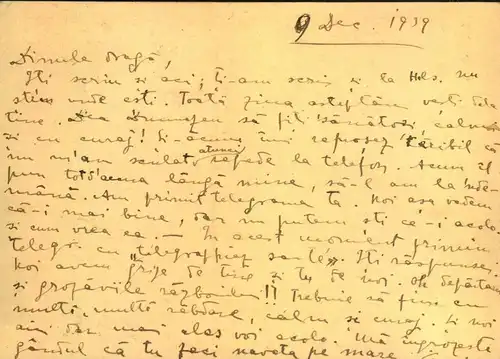 9 Dec. 1939
Dinule dragă,
Îți scriu și aci; ți-am scris și la Hels. nu
știm unde ești. Toată ziua așteptăm vești dela
tine. Dea Dumnezeu să fiți sănătoși, calmi
și cu curaj! Și-acum îmi reproșez teribil că
nu m'am sculat atunci repede la telefon. Acum îl
pun totd'auna lângă mine, să-l am la înde-
mână. Am primit telegrama ta. Noi așa vedem
că-i mai bine, dar nu putem ști ce-i acolo
și cum vrea ea. — În acest moment primim
telegr. cu "télégraphiez santé". Îți răspundem.
Noi avem grije de tine și tu de noi. Oh depărtarea
și grozăviile războiului!! Trebuie să fim cu
multă, multă răbdare, calm și curaj. Și noi
aici dar mai ales voi acolo. Mă îngrozește
gândul că tu faci naveta pe mare